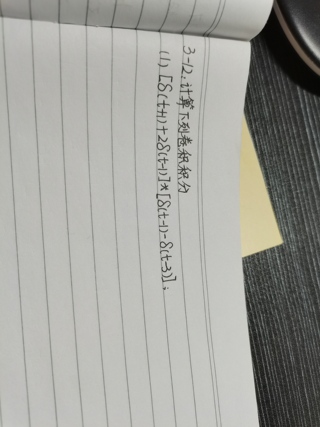 3-12.计算下列卷积积分
(1) [δ(t+1)+2δ(t-1)]*[δ(t-1)-δ(t-3)];